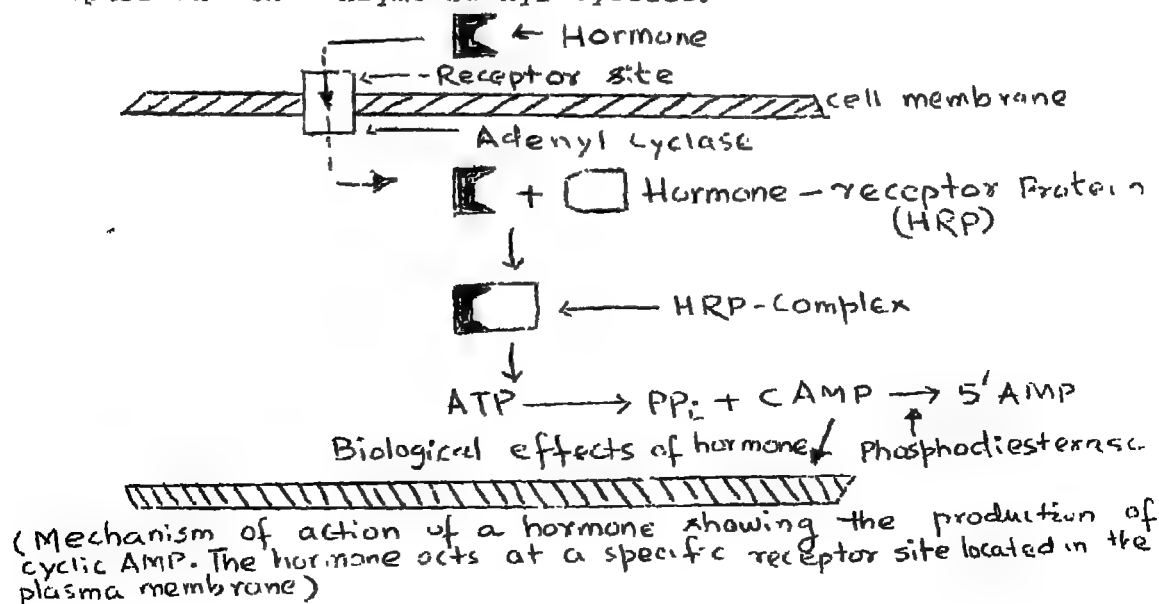 ← Hormone
← Receptor site
cell membrane
← Adenyl cyclase
+ Hormone - receptor Protein
(HRP)
← HRP-Complex
ATP → PPi + CAMP → 5' AMP
Biological effects of hormone Phosphodiesterase
(Mechanism of action of a hormone showing the production of
cyclic AMP. The hormone acts at a specific receptor site located in the
plasma membrane)